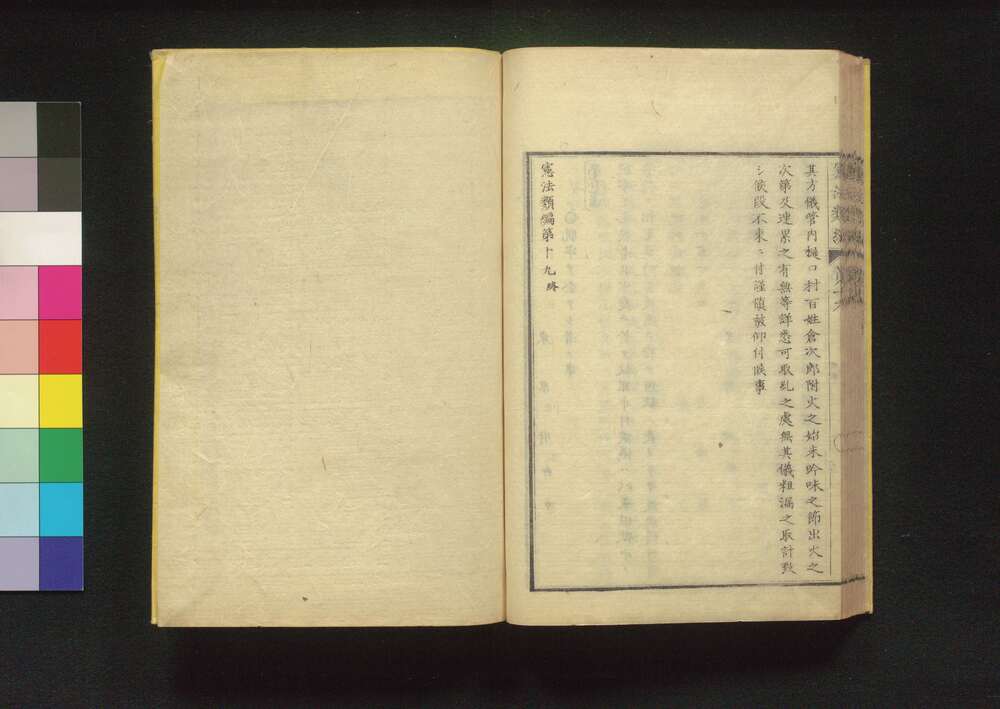 其方儀管内樋口村百姓倉次郎附火之始末吟味之節出火之
次第及連累之有無等詳悉可取糺之處無其儀粗漏之取計致
シ候段不束ニ付謹愼被仰付候事
憲法類編第十九終
憲法類編